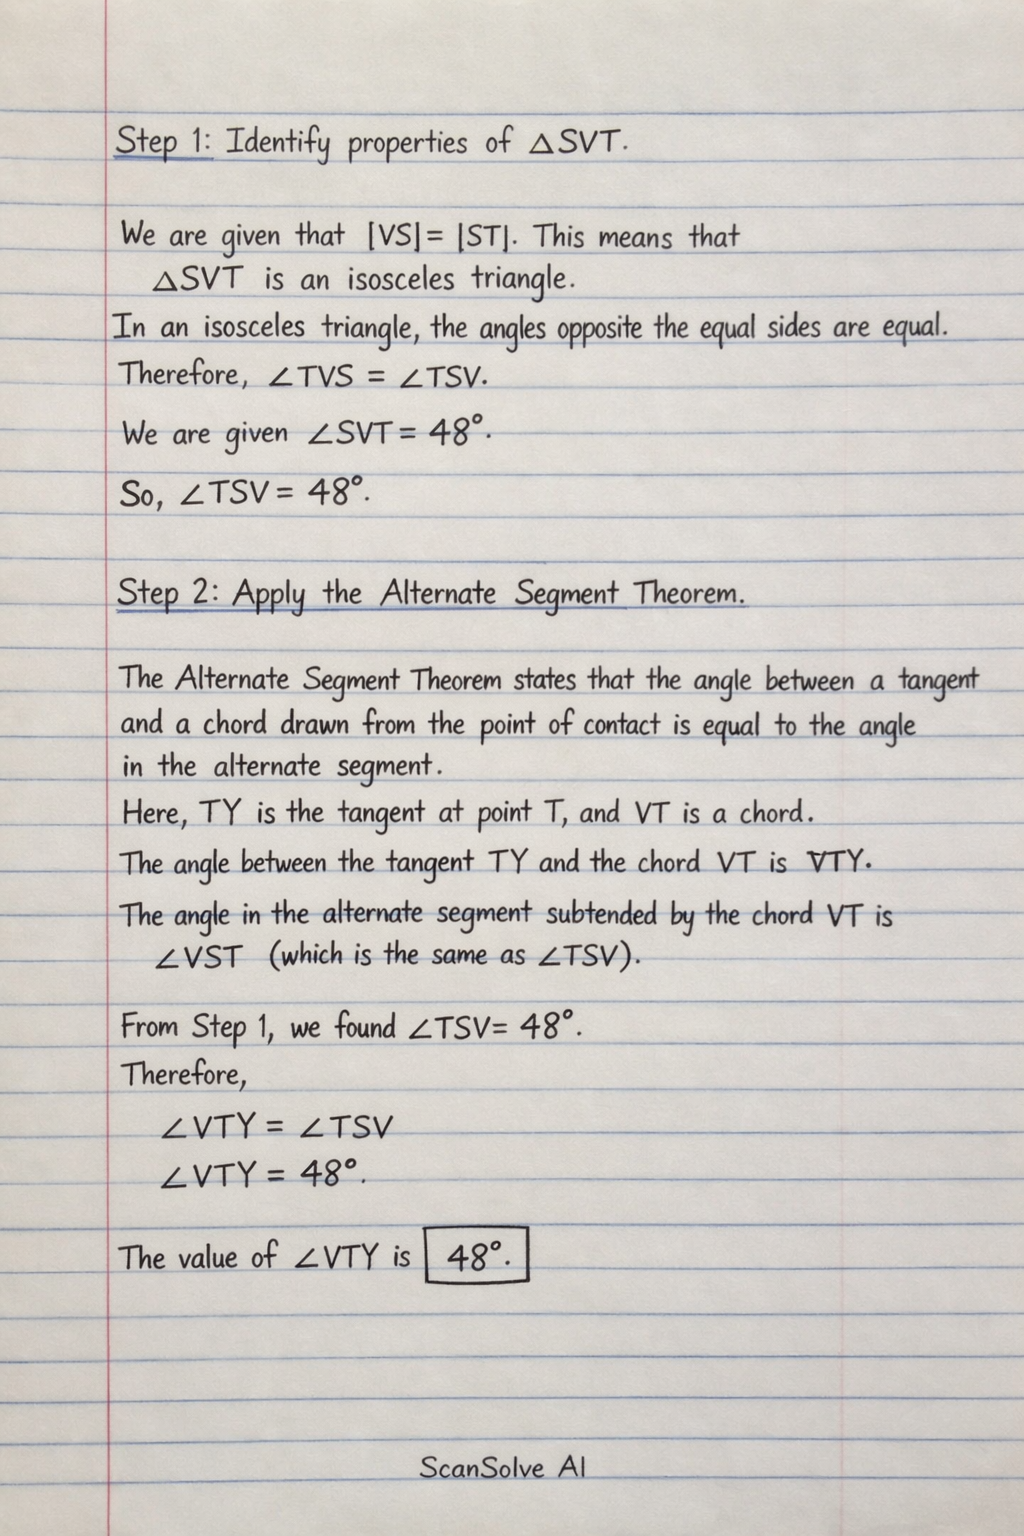 Step 1: Identify properties of △SVT.
We are given that |VS|= |ST|. This means that
△SVT is an isosceles triangle.
In an isosceles triangle, the angles opposite the equal sides are equal.
Therefore, ∠TVS = ∠TSV.
We are given ∠SVT = 48°.
So, ∠TSV = 48°.
Step 2: Apply the Alternate Segment Theorem.
The Alternate Segment Theorem states that the angle between a tangent
and a chord drawn from the point of contact is equal to the angle
in the alternate segment.
Here, TY is the tangent at point T, and VT is a chord.
The angle between the tangent TY and the chord VT is VTY.
The angle in the alternate segment subtended by the chord VT is
∠VST (which is the same as ∠TSV).
From Step 1, we found ∠TSV= 48°.
Therefore,
∠VTY = ∠TSV
∠VTY = 48°.
The value of ∠VTY is 48°.
ScanSolve AI